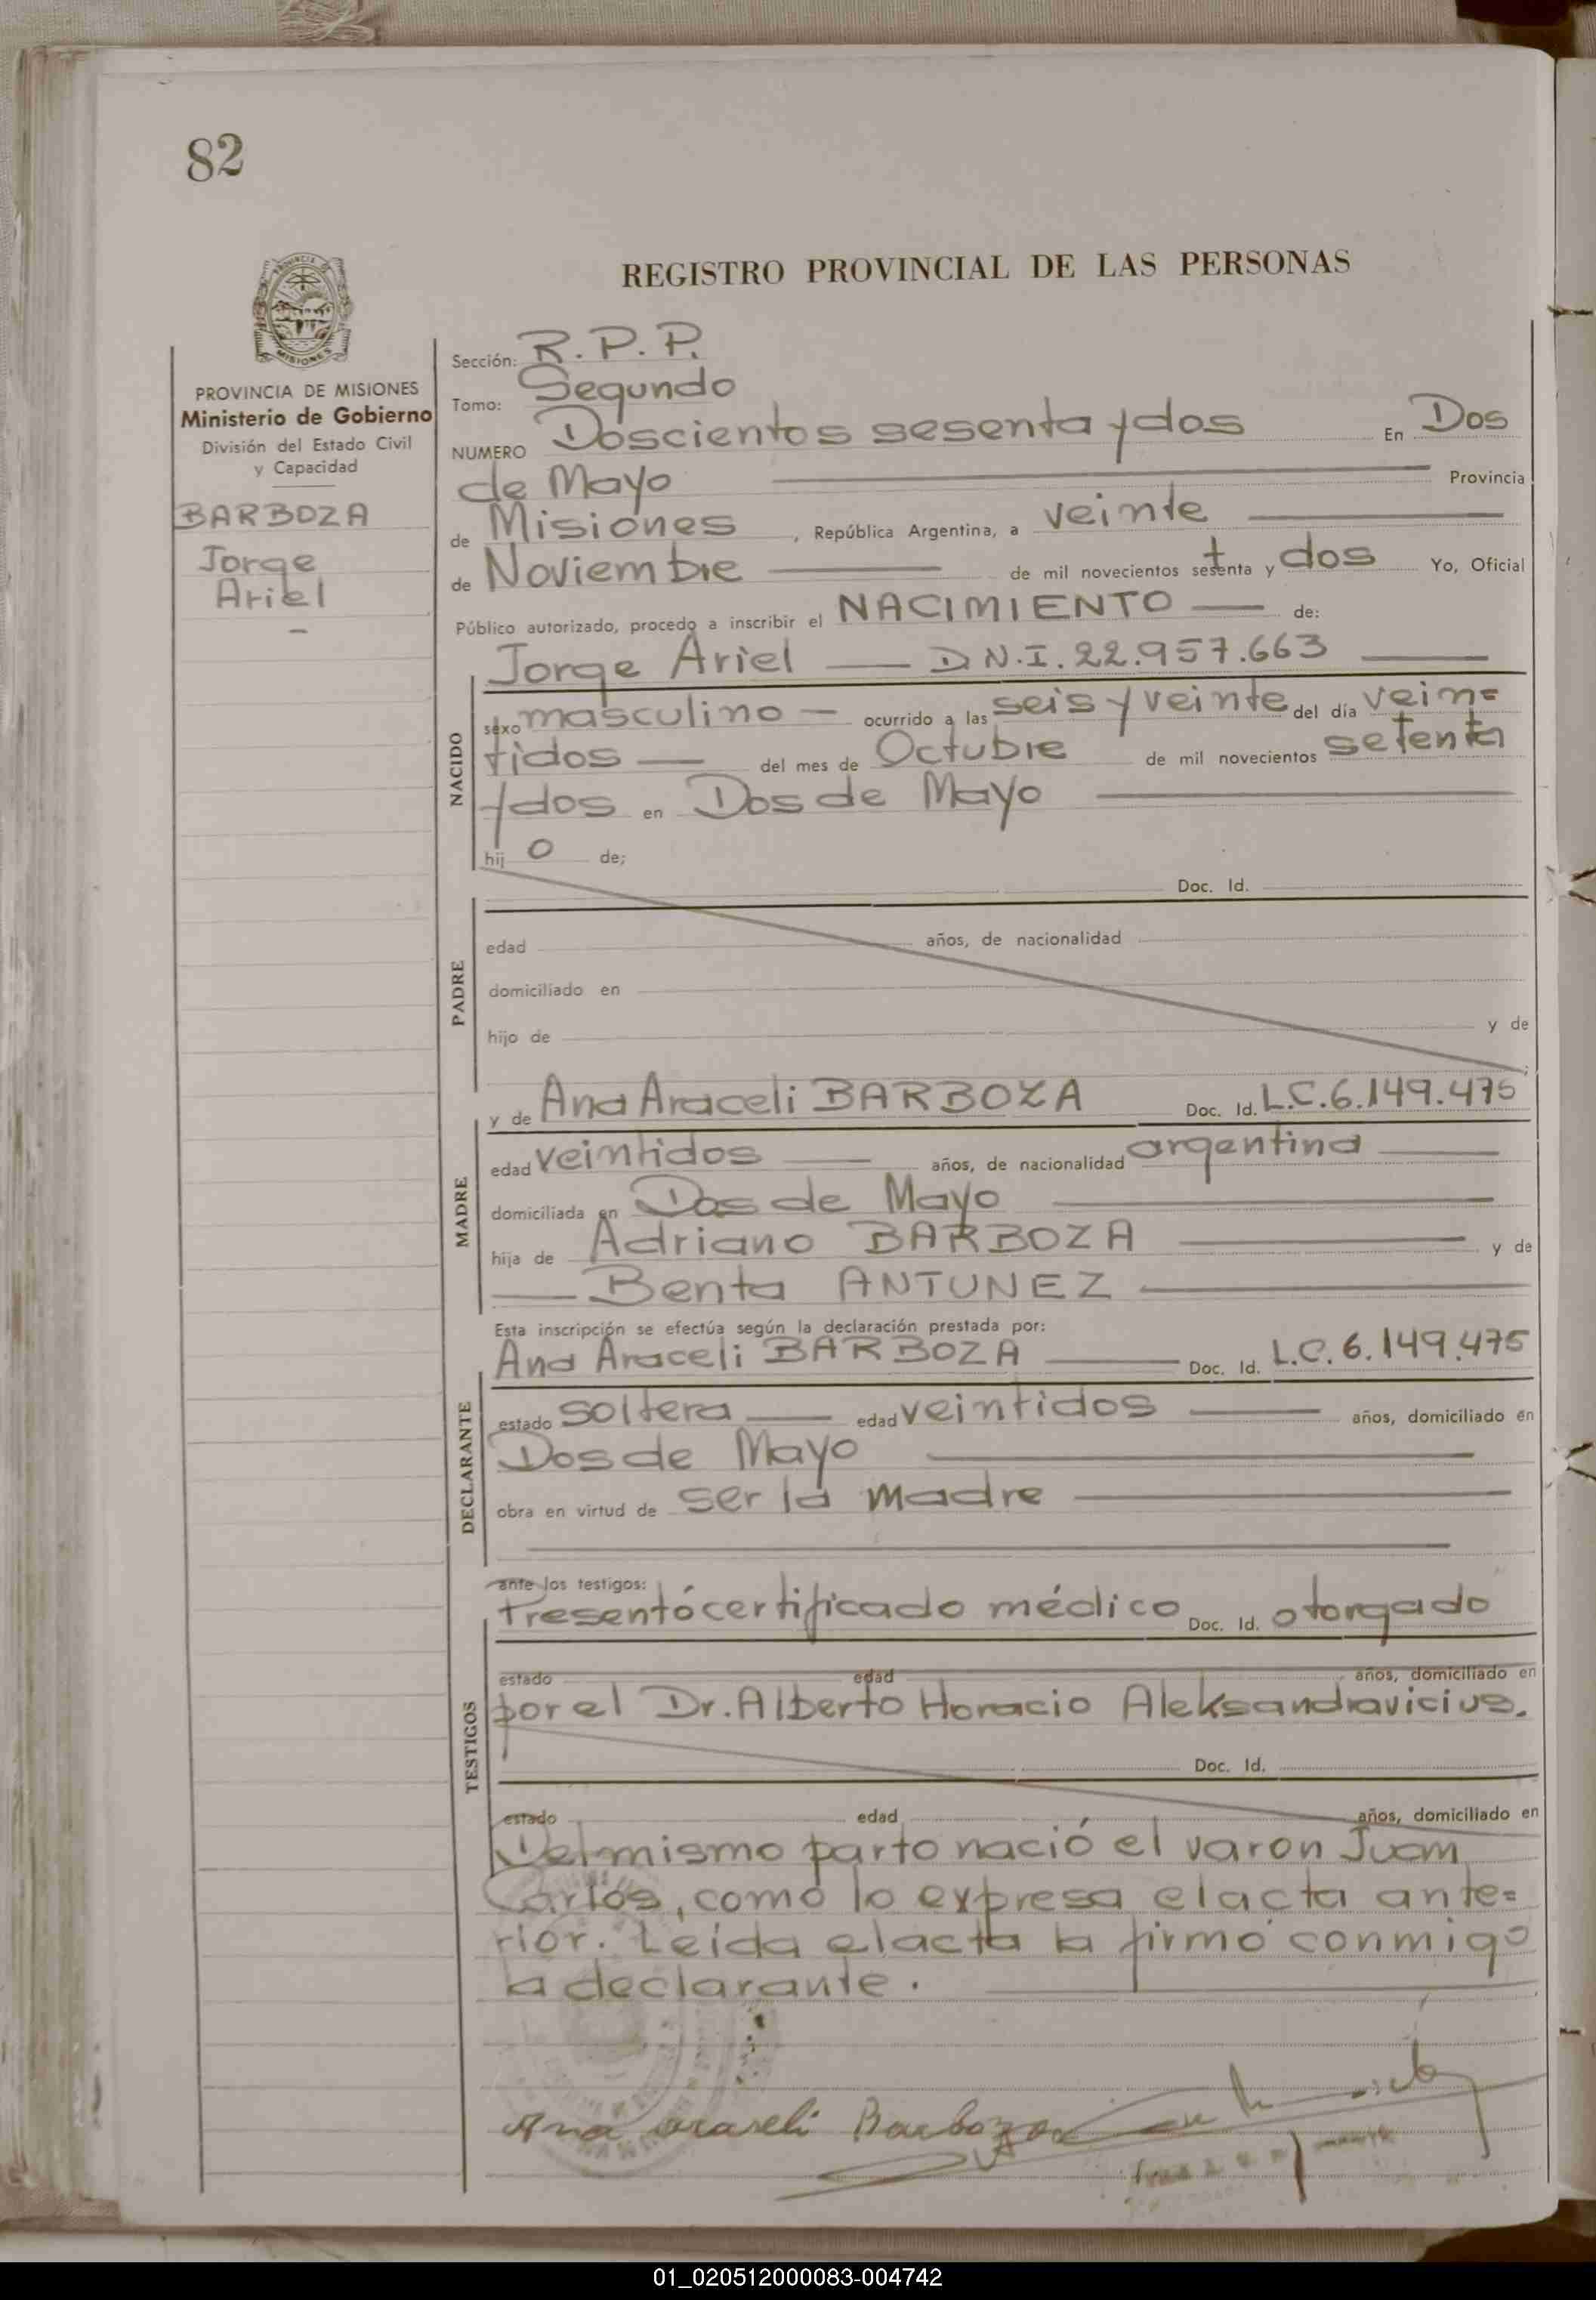 82
REGISTRO PROVINCIAL DE LAS PERSONAS
MISIONES
PROVINCIA DE MISIONES
Ministerio de Gobierno
División del Estado Civil
y Capacidad
BARBOZA
Jorge
Ariel
Sección: R.P.P.
Tomo: Segundo
NUMERO Doscientos sesenta y dos En Dos
de Mayo Provincia
de Misiones, República Argentina, a veinte
de Noviembre de mil novecientos setenta y dos Yo, Oficial
Público autorizado, procedo a inscribir el NACIMIENTO de:
Jorge Ariel — D.N.I. 22.957.663
NACIDO
sexo masculino — ocurrido a las seis y veinte del día vein=
tidos — del mes de Octubre de mil novecientos setenta
y dos en Dos de Mayo
hij o de;
Doc. Id.
PADRE
edad años, de nacionalidad
domiciliado en
hijo de y de
MADRE
y de Ana Araceli BARBOZA Doc. Id. L.C.6.149.475
edad veintidos años, de nacionalidad argentina
domiciliada en Dos de Mayo
hija de Adriano BARBOZA y de
Benta ANTUNEZ
Esta inscripción se efectúa según la declaración prestada por:
DECLARANTE
Ana Araceli BARBOZA Doc. Id. L.C. 6.149.475
estado soltera edad veintidos años, domiciliado en
Dos de Mayo
obra en virtud de ser la madre
TESTIGOS
ante los testigos:
Presentó certificado médico Doc. Id. otorgado
estado edad años, domiciliado en
por el Dr. Alberto Horacio Aleksandravicius.
Doc. Id.
estado edad años, domiciliado en
Del mismo parto nació el varon Juan
Carlos, como lo expresa el acta ante=
rior. Leída el acta la firmó conmigo
la declarante.
Ana araseli Barboza
01_020512000083-004742